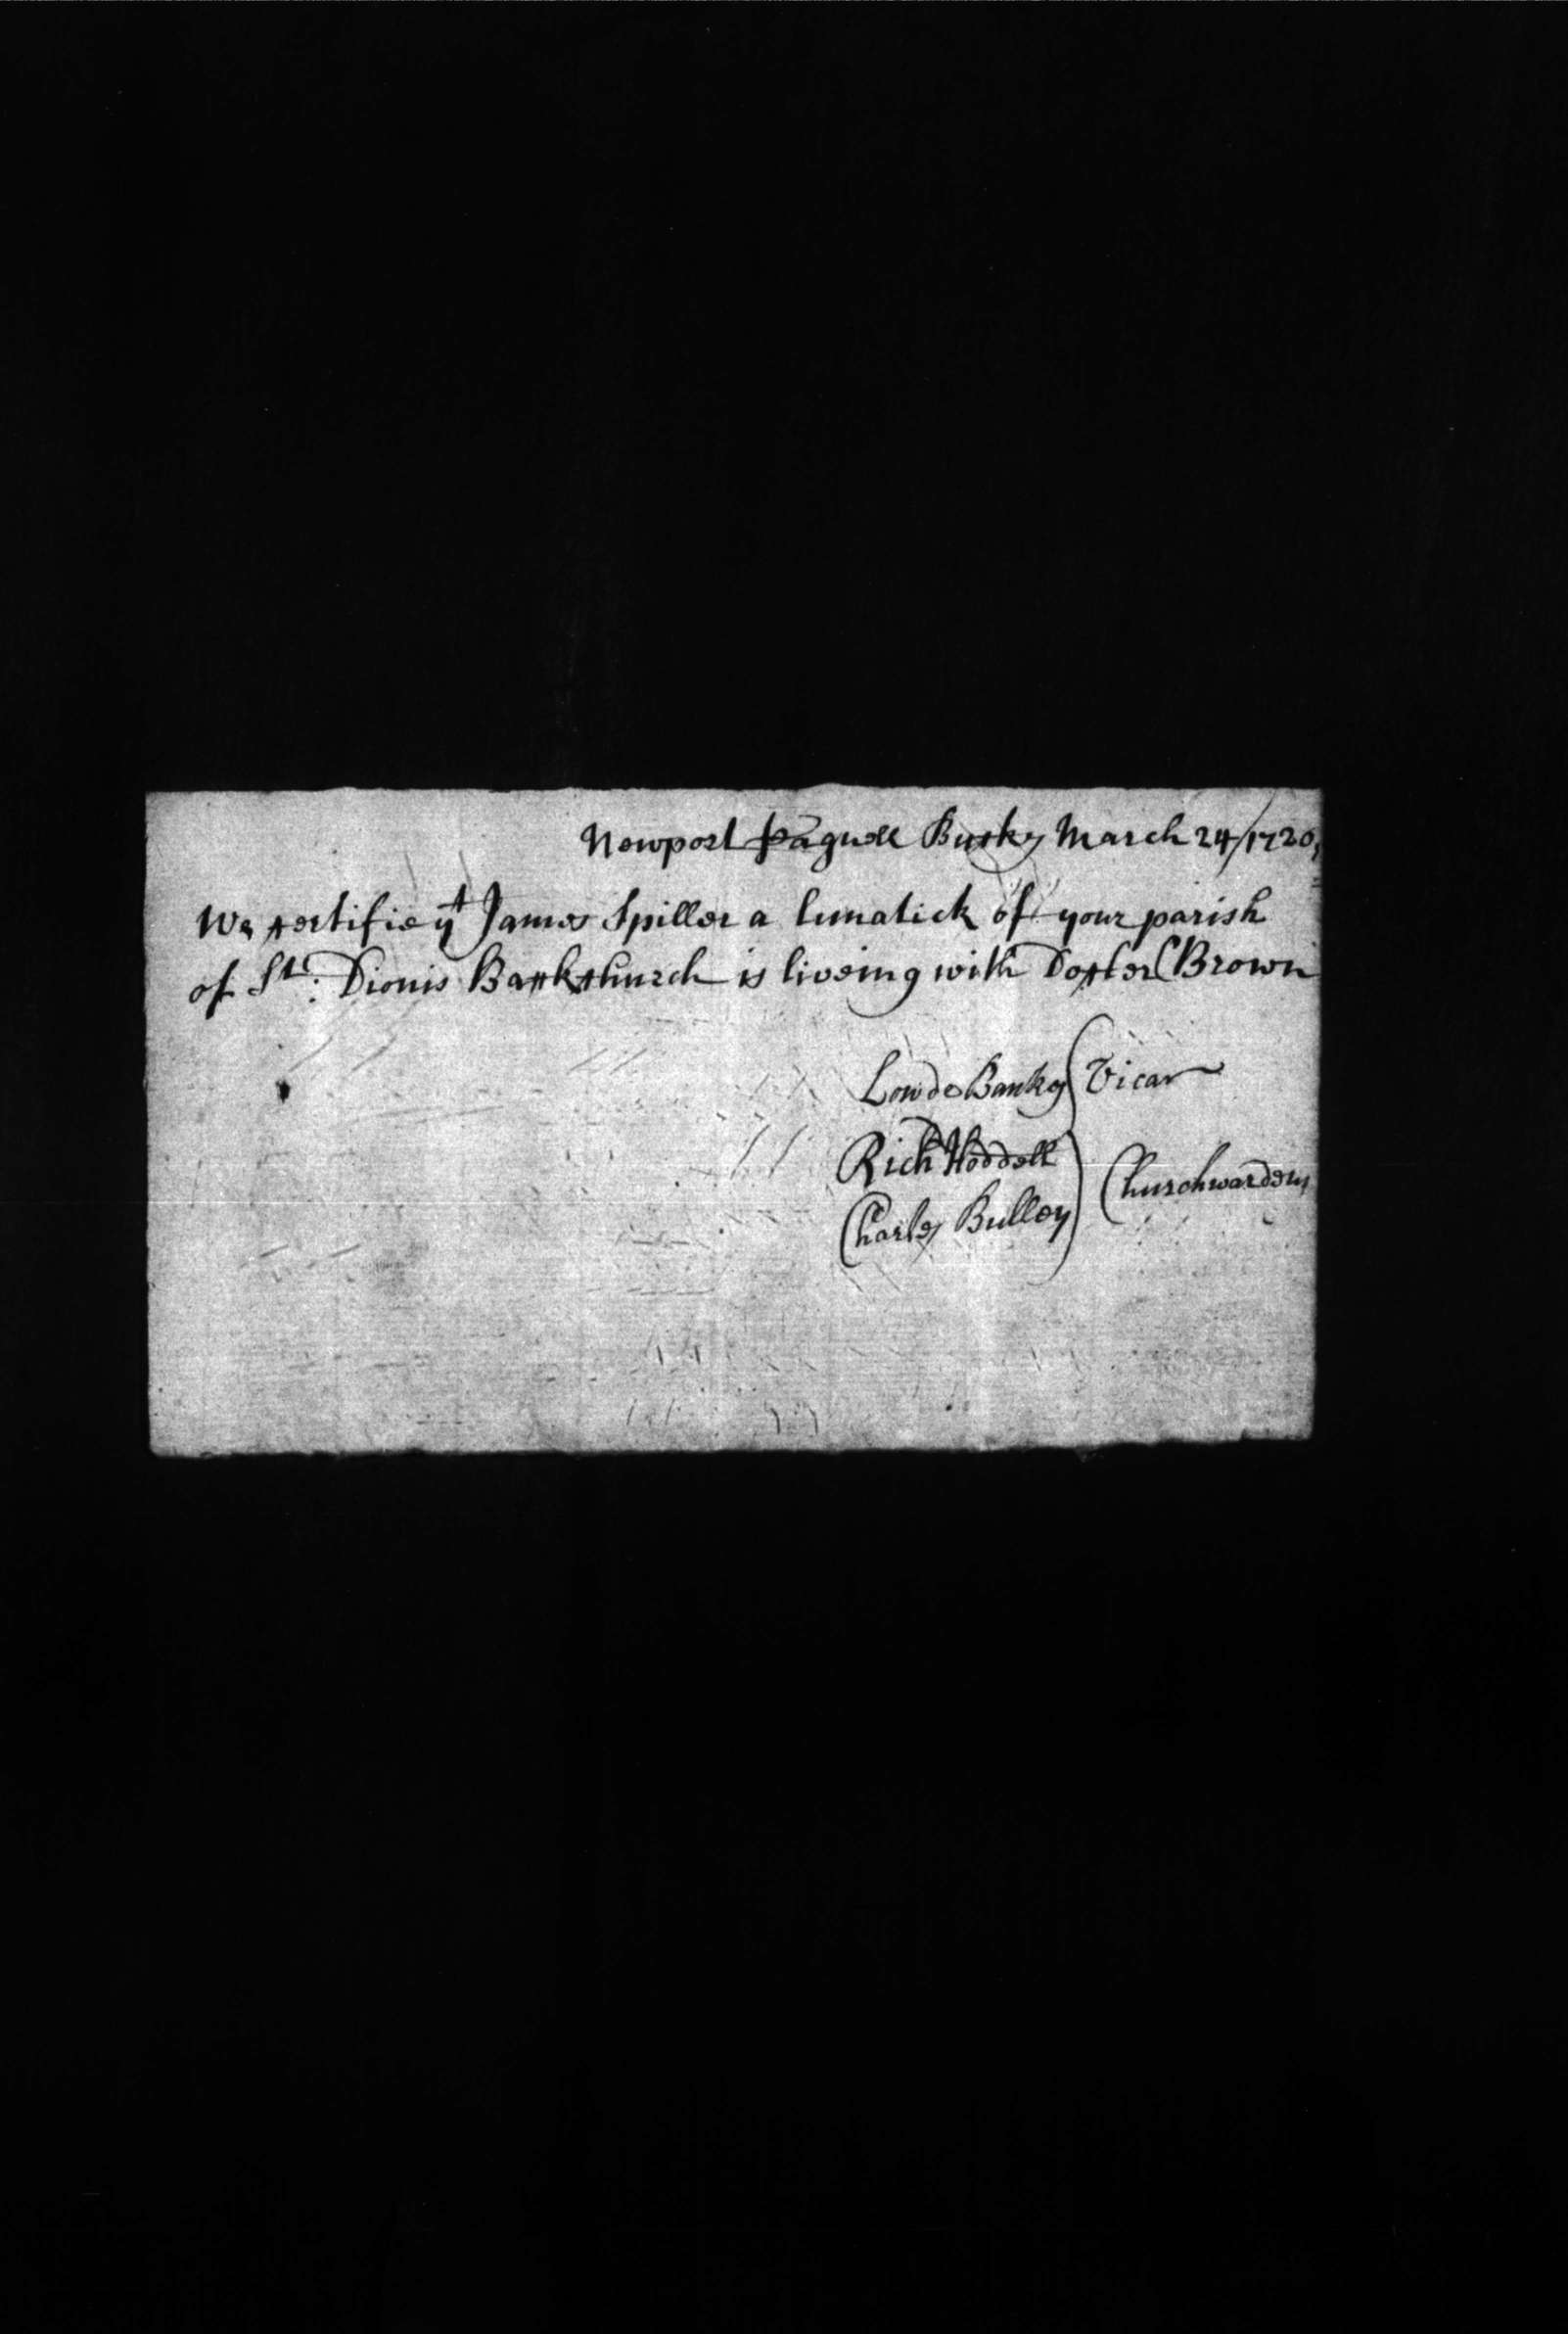 Newport Pagnell Bucks March 24/1720,
We certifie yt James Spiller a lunatick of your parish
of St: Dionis Backchurch is liveing with Docter Brown
Lowde Banks Vicar
Rich Hoddell
Churchwardens
Charles Bulley